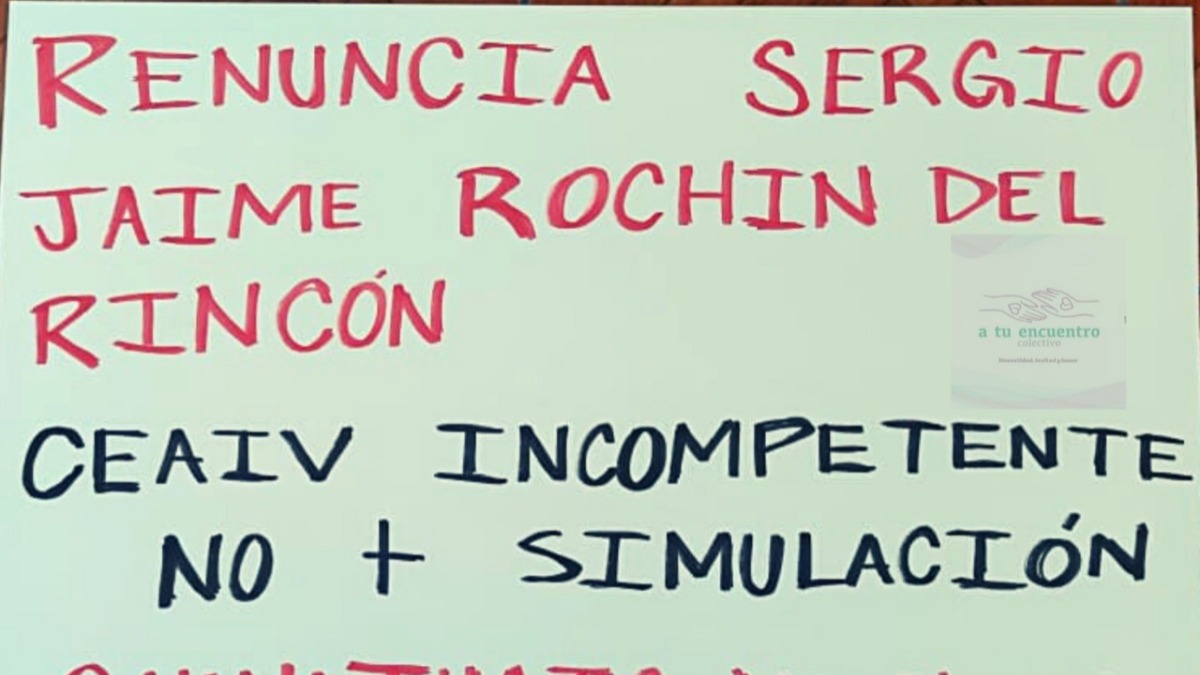 RENUNCIA SERGIO
JAIME ROCHIN DEL
RINCÓN
a tu encuentro
colectivo
CEAIV INCOMPETENTE
NO + SIMULACIÓN